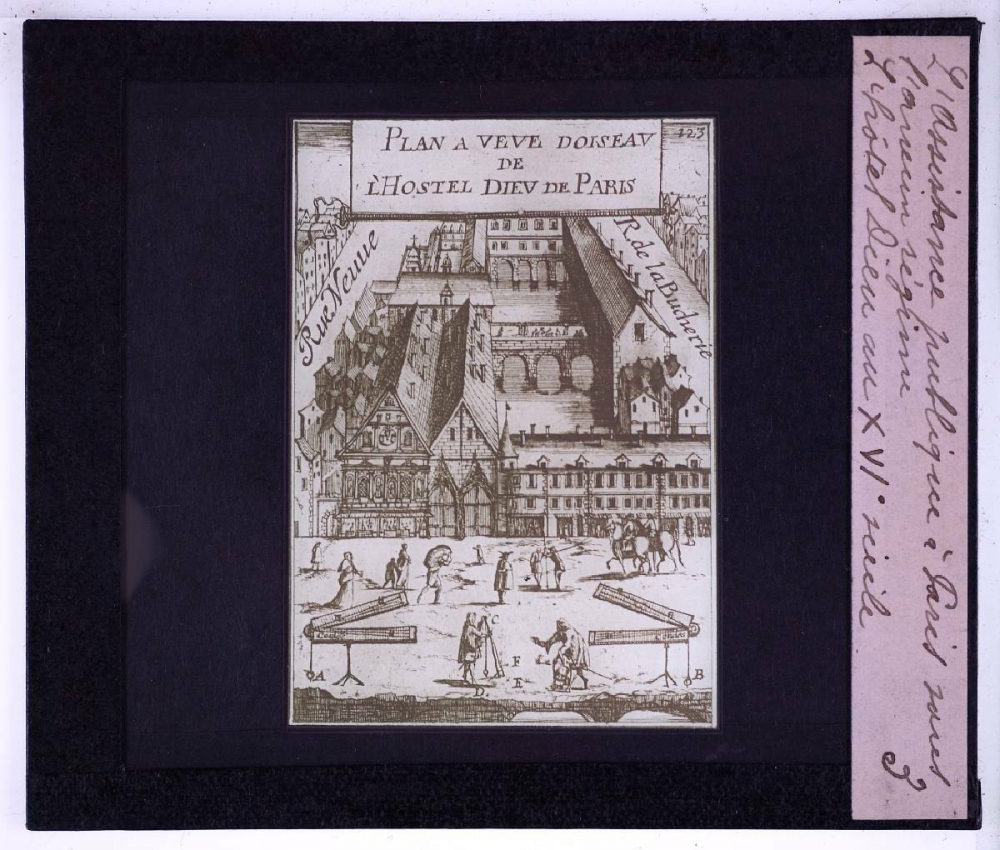 PLAN A VEVE DOISEAV
DE
L'HOSTEL DIEV DE PARIS
123
Rue Neuue
R. de la Bucherie
A
C
D
F
E
B
L'Assistance publique à Paris sous
l'ancien régime
L'hôtel Dieu au XVI° siècle
3